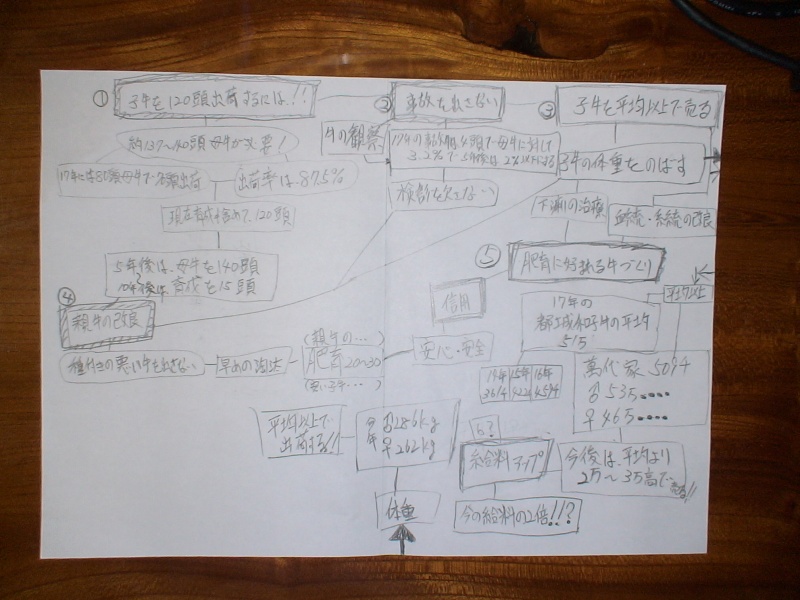 ① 子牛を120頭出荷するには!!
約137~140頭母牛が必要!
出荷率は87.5%
現在育成も含めて120頭
5年後は、母牛を140頭
10年後は 育成を15頭
② 事故を出さない
牛の観察
3.2%で 5年後は 2%以下にする
③ 子牛を平均以上で売る
子牛の体重をのばす
下痢の治療
血統・系統の改良
④ 親牛の改良
種付きの悪い牛を出さない
早めの淘汰
(親牛の…)
肥育 20~30
安心・安全
信用
⑤ 肥育に好まれる牛づくり
平均以上
17年の
都城和子牛の平均
515
14年 15年 16年
361.4 422.1 459.4
萬代家 50.9千
♂ 53万‥‥
♀ 46万‥‥
今後は、平均より
2万~3万高で
売る!!
ら?
給料 アップ
今の給料の2倍!!?
平均以上で
出荷する!!
今年
♂286kg
♀262kg
体重